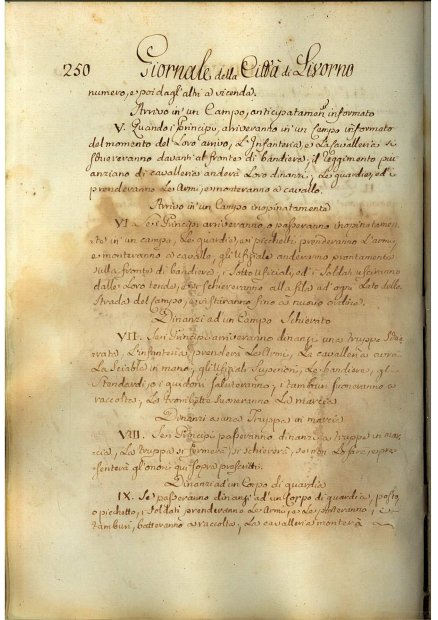 250 Giornale della Città di Livorno
numero, e poi dagl'altri a vicenda.
Arrivo in un Campo, anticipatamen: informato
V. Quando i Principi, arriveranno in un Campo informato
del momento del Loro arrivo, L'Infanteria, e La Cavalleria si
schiereranno davanti al fronte di bandiera, il Reggimento piu
anziano di cavalleria anderà Loro dinanzi; Le guardie, ed i
prenderanno Le Armi, e monteranno a cavallo.
Arrivo in un Campo inopinatamente
VI. Se i Principi arriveranno o passeranno inopinatamen:
te in un campo, Le guardie, ed i picchetti prenderanno L'armi,
e monteranno a cavallo, gl'Ufiziali anderanno prontamente
sulla fronte di bandiera; i Sotto Ufiziali, ed i Soldati usciranno
dalle Loro tende, e si schiereranno alla fila ad ogni Lato della
Strada del campo, e vi staranno fino a nuovo ordine.
Dinanzi ad un Campo Schierato
VII. Se i Principi arriveranno dinanzi a una truppa Schie
rata, L'infanteria prenderà Le Armi, La cavalleria avrà
La Sciabla in mano, gl'Ufiziali Superiori, Le bandiere, gli
Stendardi, o i guidoni saluteranno; i tamburi suoneranno a
raccolta, Le trombette suoneranno La marcia
Dinanzi a una Truppa in marcia
VIII. Se i Principi passeranno dinanzi a truppe in mar:
cia, La truppa si fermerà, si schiererà, se non Lo fare, e pre:
senterà gl'onori qui sopra prescritti.
Dinanzi ad un Corpo di guardia
IX. Se passeranno dinanzi ad un Corpo di guardia, posto,
o picchetto, i Soldati prenderanno Le Armi, e Le porteranno, i
tamburi, batteranno a raccolta, La cavalleria monterà